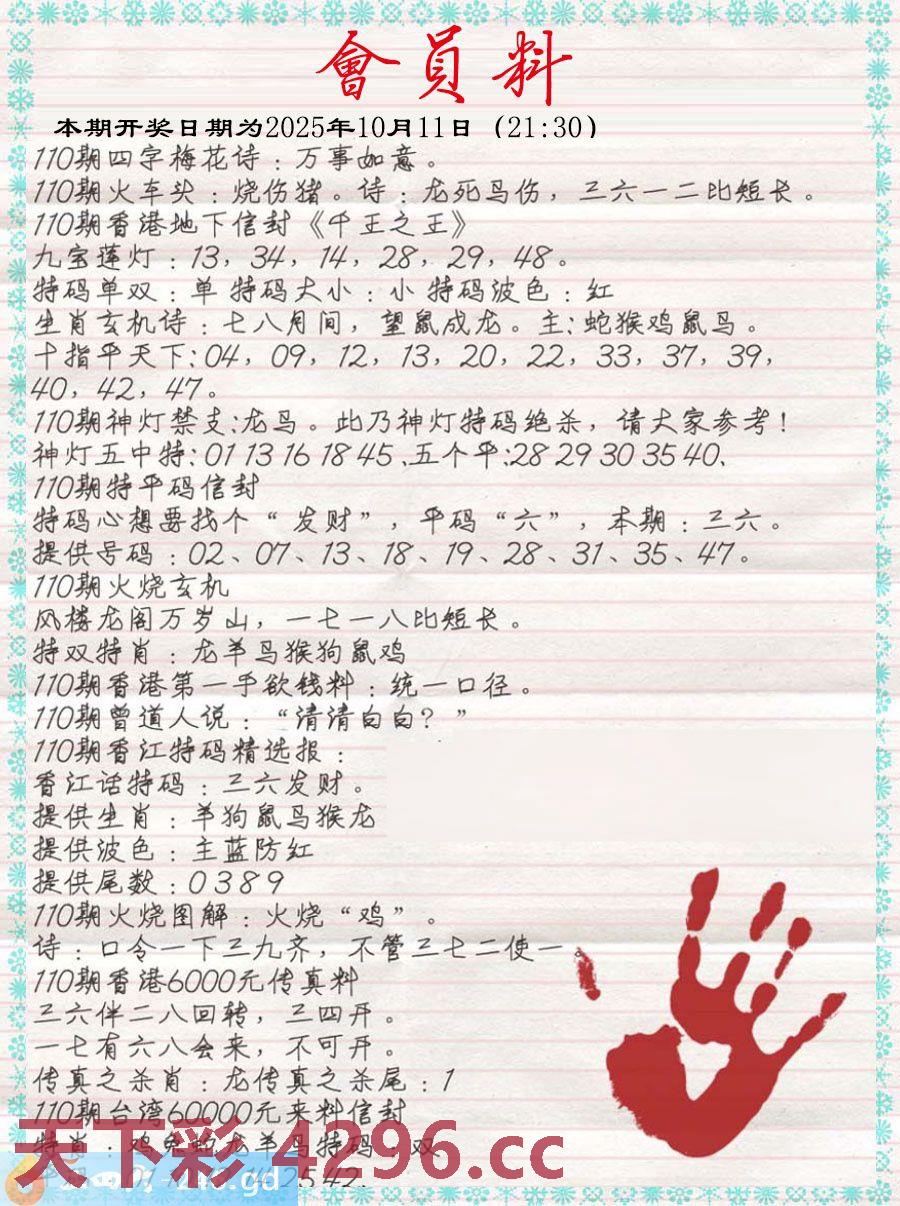 會員料
本期开奖日期为2025年10月11日（21:30）
110期四字梅花诗：万事如意。
110期火车头：烧伤猪。诗：龙死马伤，三六一二比短长。
110期香港地下信封《千王之王》
九宝莲灯：13，34，14，28，29，48。
特码单双：单 特码大小：小 特码波色：红
生肖玄机诗：七八月间，望鼠成龙。主:蛇猴鸡鼠马。
十指平天下:04，09，12，13，20，22，33，37，39，
40，42，47。
110期神灯禁支:龙马。此乃神灯特码绝杀，请大家参考！
神灯五中特:01 13 16 18 45 、五个平:28 29 30 35 40、
110期特平码信封
特码心想要找个“发财”，平码“六”，本期：三六。
提供号码：02、07、13、18、19、28、31、35、47。
110期火烧玄机
风楼龙阁万岁山，一七一八比短长。
特双特肖：龙羊马猴狗鼠鸡
110期香港第一手欲钱料：统一口径。
110期曾道人说：“清清白白？”
110期香江特码精选报：
香江话特码：三六发财。
提供生肖：羊狗鼠马猴龙
提供波色：主蓝防红
提供尾数：0 3 8 9
110期火烧图解：火烧“鸡”。
诗：口令一下三九齐，不管三七二使一。
110期香港6000元传真料
三六伴二八回转，三四开。
一七有六八会来，不可开。
传真之杀肖：龙传真之杀尾：1
110期台湾60000元来料信封
特肖：鸡兔蛇龙羊马特码：双
天下彩.4296.cc
25 42、